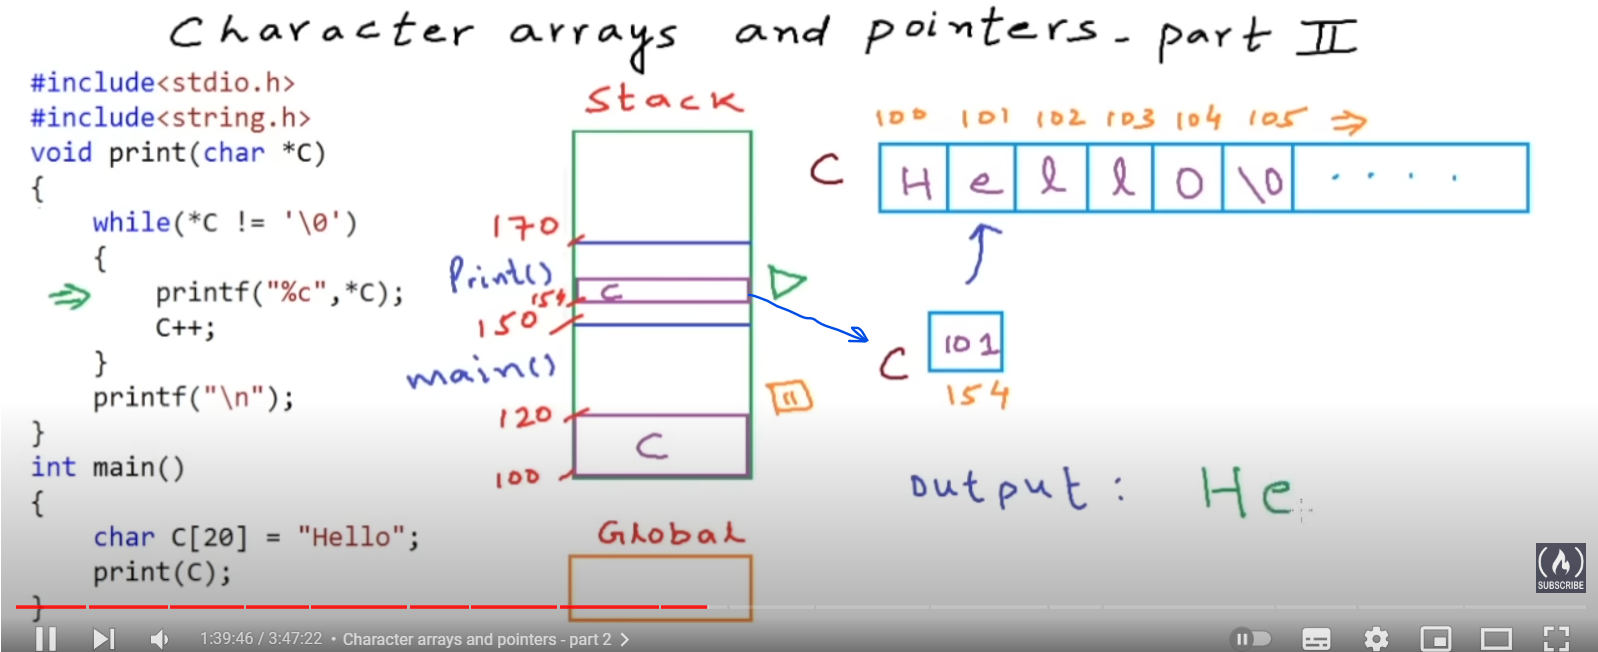 Character arrays and pointers - part II
#include<stdio.h>
#include<string.h>
void print(char *C)
{
while(*C != '\0')
{
printf("%c",*C);
C++;
}
printf("\n");
}
int main()
{
char C[20] = "Hello";
print(C);
}
Stack
170
Print()
154
C
150
main()
120
C
100
Global
100 101 102 103 104 105
C H e l l o \0 . . . .
C 101
154
output : He
SUBSCRIBE
1:39:46 / 3:47:22 • Character arrays and pointers - part 2 >